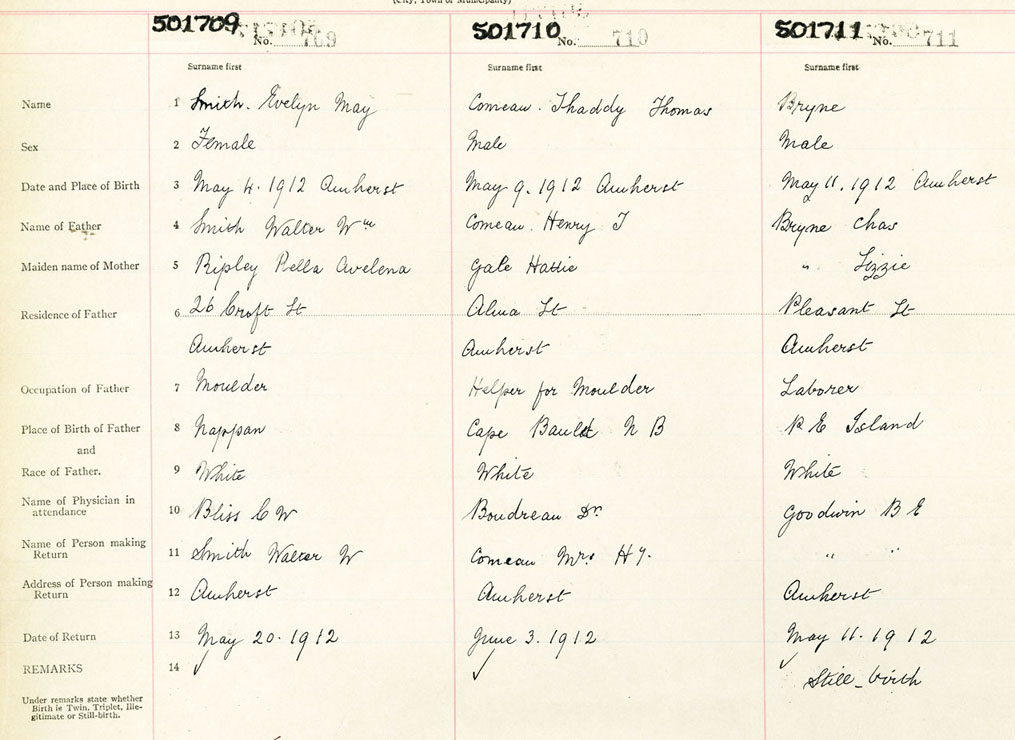 (City, Town or Municipality)
501709 No. 709 501710 No. 710 501711 No. 711
Surname first Surname first Surname first
Name 1 Smith. Evelyn May Comeau. Thaddy Thomas Bryne
Sex 2 Female Male Male
Date and Place of Birth 3 May 4. 1912 Amherst May 9. 1912 Amherst May 11. 1912 Amherst
Name of Father 4 Smith Walter Wm Comeau. Henry T Bryne Chas
Maiden name of Mother 5 Ripley Bella Avelena Gale Hattie " Lizzie
Residence of Father 6 26 Croft St Alma St Pleasant St
Amherst Amherst Amherst
Occupation of Father 7 Moulder Helper for Moulder Laborer
Place of Birth of Father 8 Nappan Cape N B P E Island
and
Race of Father. 9 White White White
Name of Physician in
attendance 10 Bliss C W Boudreau Dr. Goodwin B E
Name of Person making
Return 11 Smith Walter W Comeau Mrs Hy. " "
Address of Person making
Return 12 Amherst Amherst Amherst
Date of Return 13 May 20. 1912 June 3. 1912 May 11. 1912
REMARKS 14 ✓ ✓ ✓ Still-birth
Under remarks state whether
Birth is Twin, Triplet, Ille-
gitimate or Still-birth.